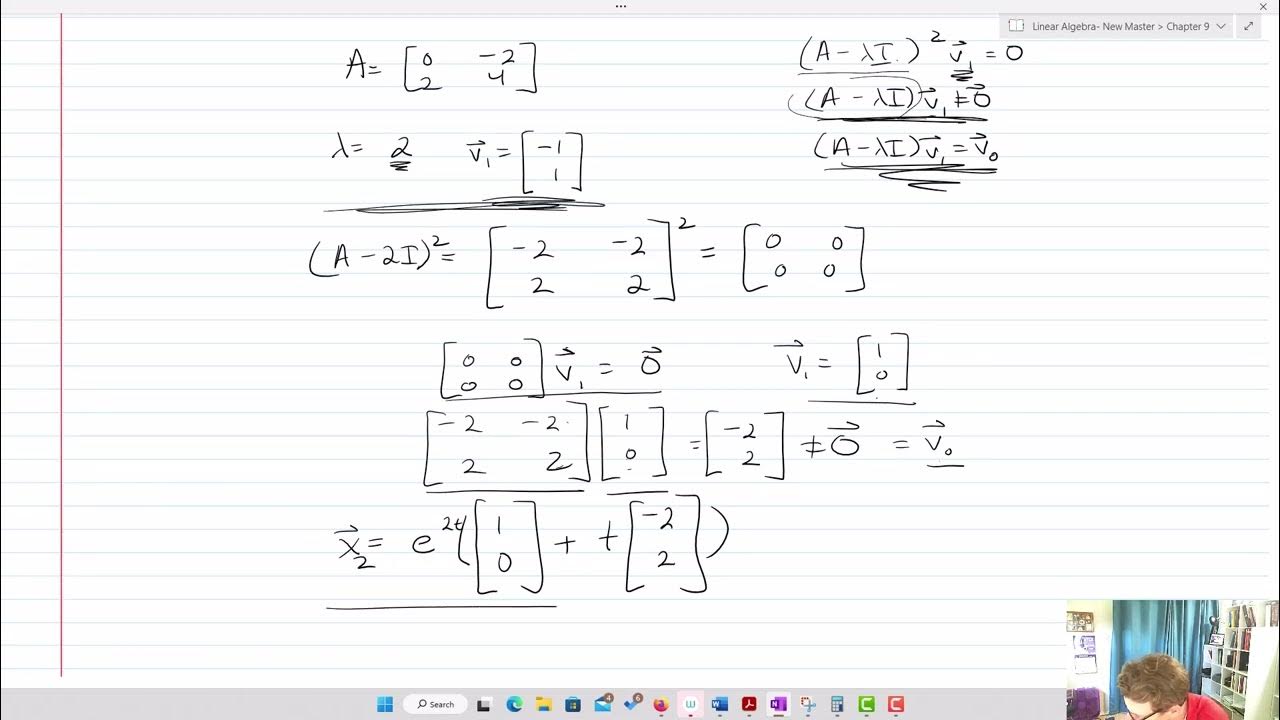 Linear Algebra- New Master > Chapter 9
A = [0 -2; 2 4]
(A - λI)² v⃗₁ = 0
(A - λI) v⃗₁ ≠ 0⃗
λ = 2 v⃗₁ = [-1; 1]
(A - λI) v⃗₁ = v⃗₀
(A - 2I)² = [-2 -2; 2 2]² = [0 0; 0 0]
[0 0; 0 0] v⃗₁ = 0⃗ v⃗₁ = [1; 0]
[-2 -2; 2 2] [1; 0] = [-2; 2] ≠ 0⃗ = v⃗₀
x⃗₂ = e^2t ([1; 0] + t [-2; 2])
Search